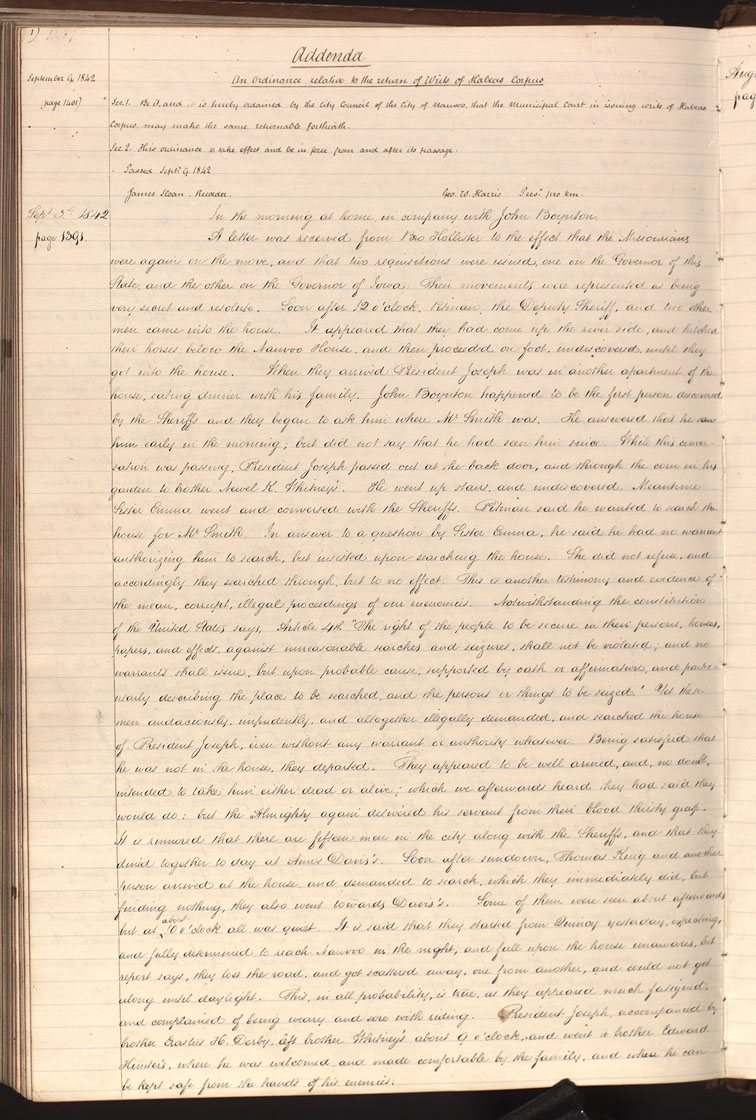 1)
Addenda
September 9, 1842
An Ordinance relative to the return of Writs of Habeas Corpus
(page 1401)
Sec 1. Be it, and it is hereby ordained by the City Council of the City of Nauvoo, that the Municipal Court in issuing writs of Habeas
Corpus, may make the same returnable forthwith.
Sec 2. This ordinance to take effect and be in force from and after its passage.
Passed Septr. 9. 1842
James Sloan. Recorder.
Geo. W. Harris Prest. pro tem.
Sept 3rd. 1842
page 1391
In the morning at home, in company with John Boynton.
A letter was received from Bro Hollister to the effect that the Missourians
were again on the move, and that two requisitions were issued, one on the Governor of this
State, and the other on the Governor of Iowa. Their movements were represented as being
very secret and resolute. Soon after 12 o'clock, Pitman, the Deputy Sheriff, and two other
men came into the house. It appeared that they had come up the river side, and hitched
their horses below the Nauvoo House, and then proceeded on foot, undiscovered, until they
got into the house. When they arrived President Joseph was in another apartment of the
house, eating dinner with his family. John Boynton happened to be the first person discovered
by the Sheriffs and they began to ask him where Mr Smith was. He answered that he saw
him early in the morning; but did not say that he had seen him since. While this conver-
sation was passing, President Joseph passed out at the back door, and through the corn in his
garden to brother Newel K. Whitney's. He went up stairs, and undiscovered. Meantime
Sister Emma went and conversed with the Sheriffs. Pitman said he wanted to search the
house for Mr Smith. In answer to a question by Sister Emma, he said he had no warrant
authorizing him to search, but insisted upon searching the house. She did not refuse, and
accordingly they searched through, but to no effect. This is another testimony and evidence of
the mean, corrupt, illegal proceedings of our enemies. Notwithstanding the constitution
of the United States says, Article 4th "The right of the people to be secure in their persons, houses,
papers, and effects, against unreasonable searches and seizures, shall not be violated; and no
warrants shall issue, but upon probable cause, supported by oath or affirmation, and partic-
ularly describing the place to be searched, and the persons or things to be seized." Yet these
men audaciously, impudently, and altogether illegally demanded, and searched the house
of President Joseph, even without any warrant or authority whatever. Being satisfied that
he was not in the house, they departed. They appeared to be well armed, and, no doubt,
intended to take him either dead or alive; which we afterwards heard they had said they
would do: but the Almighty again delivered his servant from their blood thirsty grasp.
It is rumored that there are fifteen men in the city along with the Sheriffs, and that they
dined together to day at Amos Davis's. Soon after sundown, Thomas King and another
person arrived at the house, and demanded to search, which they immediately did, but
finding nothing, they also went towards Davis's. Some of them were seen about afterwards
but at about 10 o'clock all was quiet. It is said that they started from Quincy yesterday, expecting,
and fully determined to reach Nauvoo in the night, and fall upon the house unawares, but
report says, they lost the road, and got scattered away, one from another, and could not get
along until daylight. This, in all probability, is true, as they appeared much fatigued,
and complained of being weary and sore with riding. President Joseph, accompanied by
brother Erastus H. Derby, left brother Whitney's about 9 o'clock, and went to brother Edward
Hunter's, where he was welcomed and made comfortable by the family, and where he can
be kept safe from the hands of his enemies.
Augu
pag